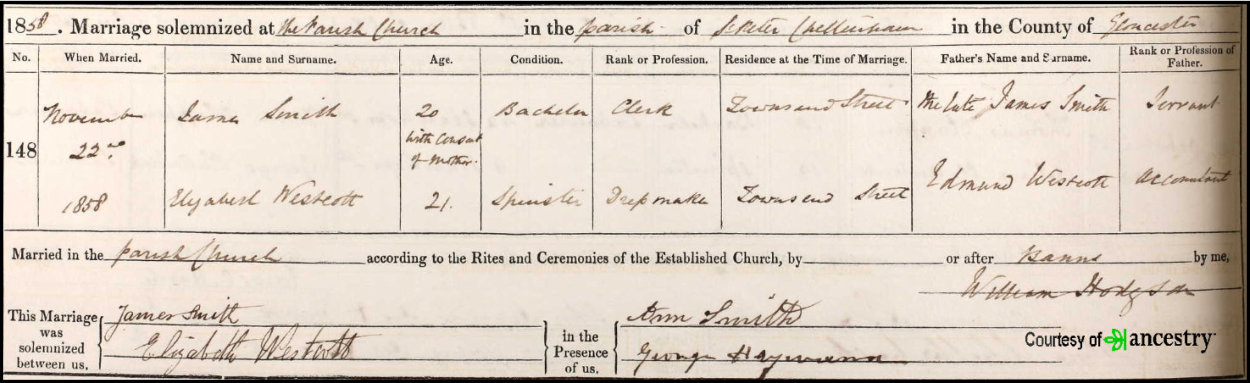 1858. Marriage solemnized at the Parish Church in the parish of St Peter Cheltenham in the County of Gloucester
No. When Married. Name and Surname. Age. Condition. Rank or Profession. Residence at the Time of Marriage. Father's Name and Surname. Rank or Profession of Father.
148 November 22nd 1858
James Smith 20 With Consent of Mother. Bachelor Clerk Townsend Street the late James Smith Servant
Elizabeth Westcott 21. Spinster Dressmaker Townsend Street Edmund Westcott Accountant
Married in the parish Church according to the Rites and Ceremonies of the Established Church, by or after Banns by me,
William Hodgson
This Marriage was solemnized between us, James Smith Elizabeth Westcott in the Presence of us, Ann Smith George Haymann
Courtesy of ancestry